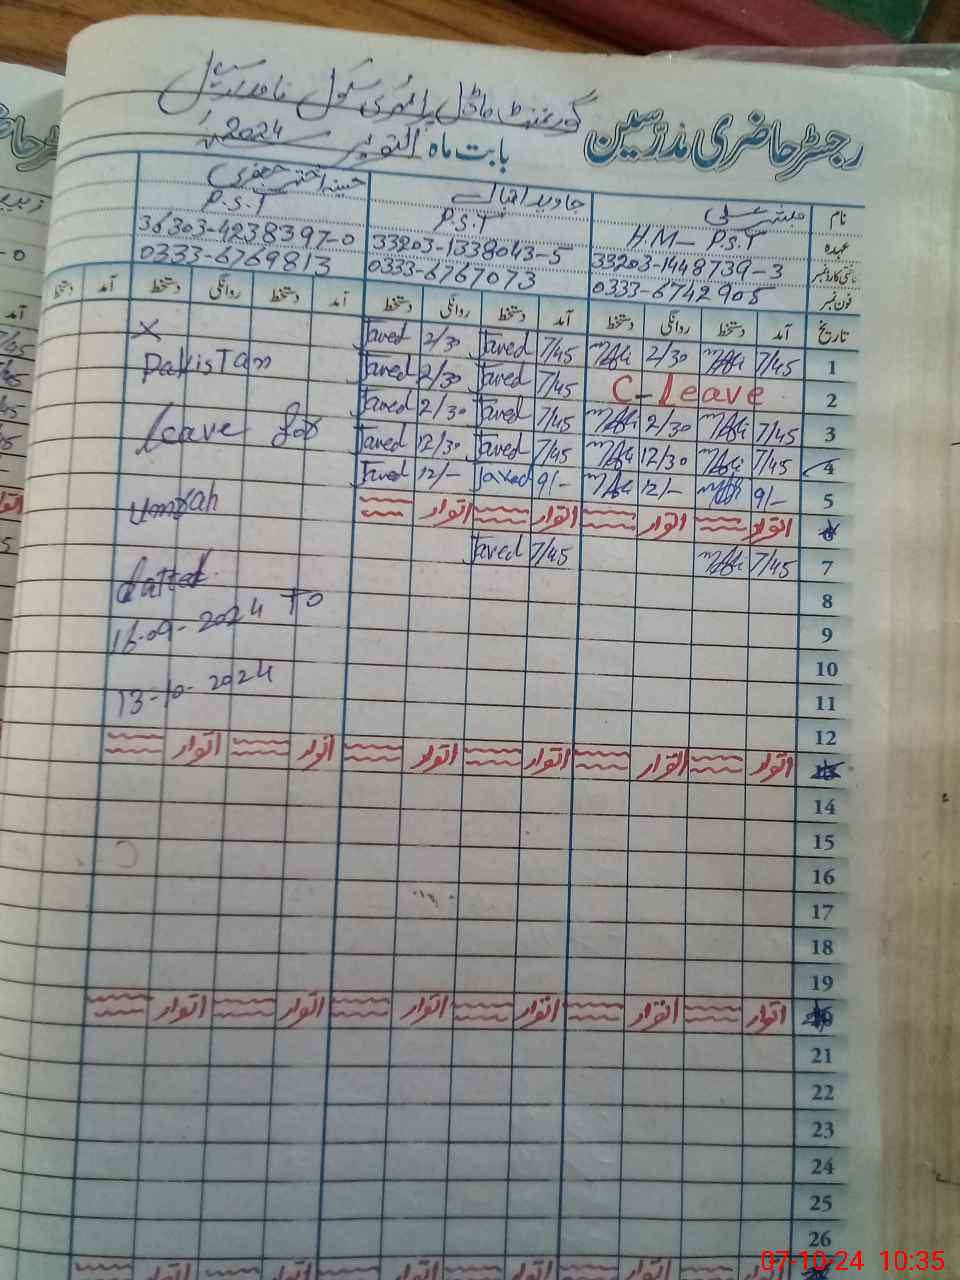 گورنمنٹ ماڈل پرائمری سکول
رجسٹر حاضری مدرسین
بابت ماہ اکتوبر 2024ء
نام
جاوید اقبال
حسینہ اختر جعفری
عہدہ
H.M- P.S.T
P.S.T
P.S.T
33203-1448739-3
33203-1338043-5
36303-4238397-0
فون نمبر
0333-6742905
0333-6767073
0333-6769813
تاریخ آمد دستخط روانگی دستخط آمد دستخط روانگی دستخط آمد دستخط روانگی دستخط آمد دستخط
1 7/45 2/30 7/45 Javed 2/30 Javed X
2 C-Leave 7/45 Javed 2/30 Javed Pakistan
3 7/45 2/30 7/45 Javed 2/30 Javed
4 7/45 12/30 7/45 Javed 12/30 Javed leave for
5 9/- 12/- 9/- Javed 12/- Javed
6 اتوار اتوار اتوار اتوار Umrah
7 7/45 7/45 Javed
8 datted
9 16-09-2024 To
10
11 13-10-2024
12
13 اتوار اتوار اتوار اتوار اتوار اتوار
14
15
16
17
18
19
20 اتوار اتوار اتوار اتوار اتوار اتوار
21
22
23
24
25
26
07-10-24 10:35